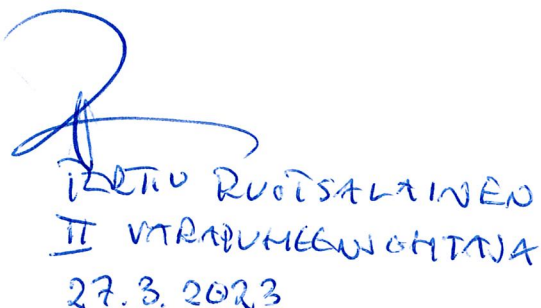 RUOTSALAINEN
II VARAPUHEENJOHTAJA
27.3.2023